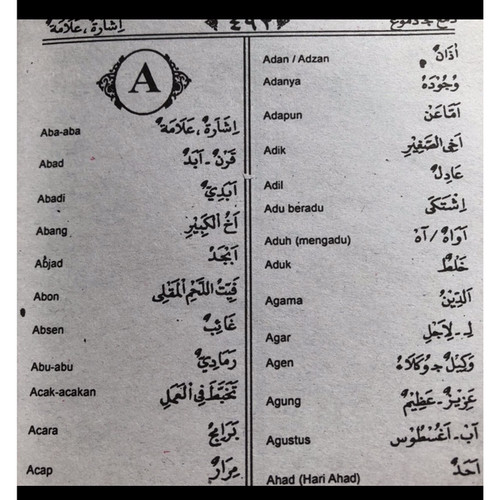 اِشَارَةٌ، عَلاَمَةٌ ٤٩٢ دَمْعٌ ج دُمُوْعٌ
A
Aba-aba اِشَارَةٌ، عَلاَمَةٌ
Abad قَرْنٌ - اَبَدٌ
Abadi اَبَدِيٌّ
Abang اَخُ الْكَبِيْرِ
Abjad اَبْجَدٌ
Abon فَتِيْتُ اللَّحْمِ الْمَقْلِى
Absen غَائِبٌ
Abu-abu رَمَادِيٌّ
Acak-acakan تَخَبَّطَ فِي الْعَمَلِ
Acara بَرَامِجُ
Acap مِرَارٌ
Adan / Adzan اَذَانٌ
Adanya وُجُوْدُهُ
Adapun اَمَّا عَنْ
Adik اَخِى الصَّغِيْرِ
Adil عَادِلٌ
Adu béradu اِشْتَكَى
Aduh (mengadu) آوَاهُ / آهْ
Aduk خَلْطٌ
Agama اَلدِّيْنُ
Agar لِـ - لِاَجْلِ
Agen وَكِيْلٌ ج وُكَلَاءُ
Agung عَزِيْزٌ - عَظِيْمٌ
Agustus آب - اَغُسْطُوْس
Ahad (Hari Ahad) اَحَدٌ